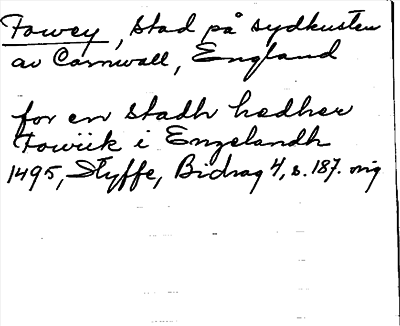 Fowey, stad på sydkusten
av Cornwall, England
for en stadh hedher
Fowiik i Engelandh
1495, Styffe, Bidrag 4, s. 187. orig